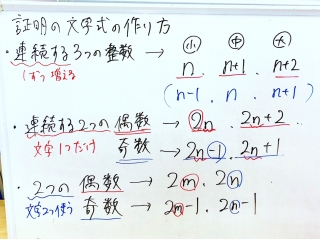 証明の文字式の作り方
小 中 大
・連続する3つの整数 → n . n+1 . n+2
1ずつ増える
( n-1 . n . n+1 )
・連続する2つの 偶数 → 2n . 2n+2
文字1つだけ 奇数 → 2n-1 . 2n+1
・2つの 偶数 → 2m . 2n
文字2つ使う 奇数 → 2m-1 . 2n-1